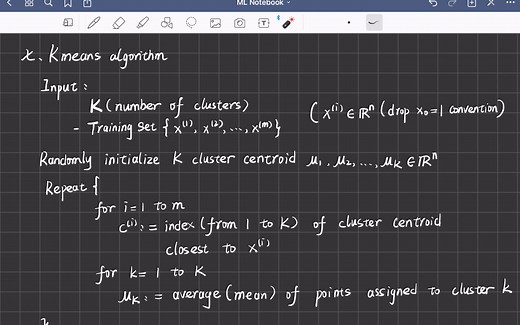 ML Notebook
x. K means algorithm
Input:
K (number of clusters)
- Training set { x⁽¹⁾, x⁽²⁾, ..., x⁽ᵐ⁾ }
( x⁽ⁱ⁾ ∈ ℝⁿ (drop x₀=1 convention)
Randomly initialize K cluster centroid μ₁, μ₂, ..., μ_K ∈ ℝⁿ
Repeat {
for i=1 to m
c⁽ⁱ⁾ := index (from 1 to K) of cluster centroid
closest to x⁽ⁱ⁾
for k= 1 to K
μ_K := average (mean) of points assigned to cluster k